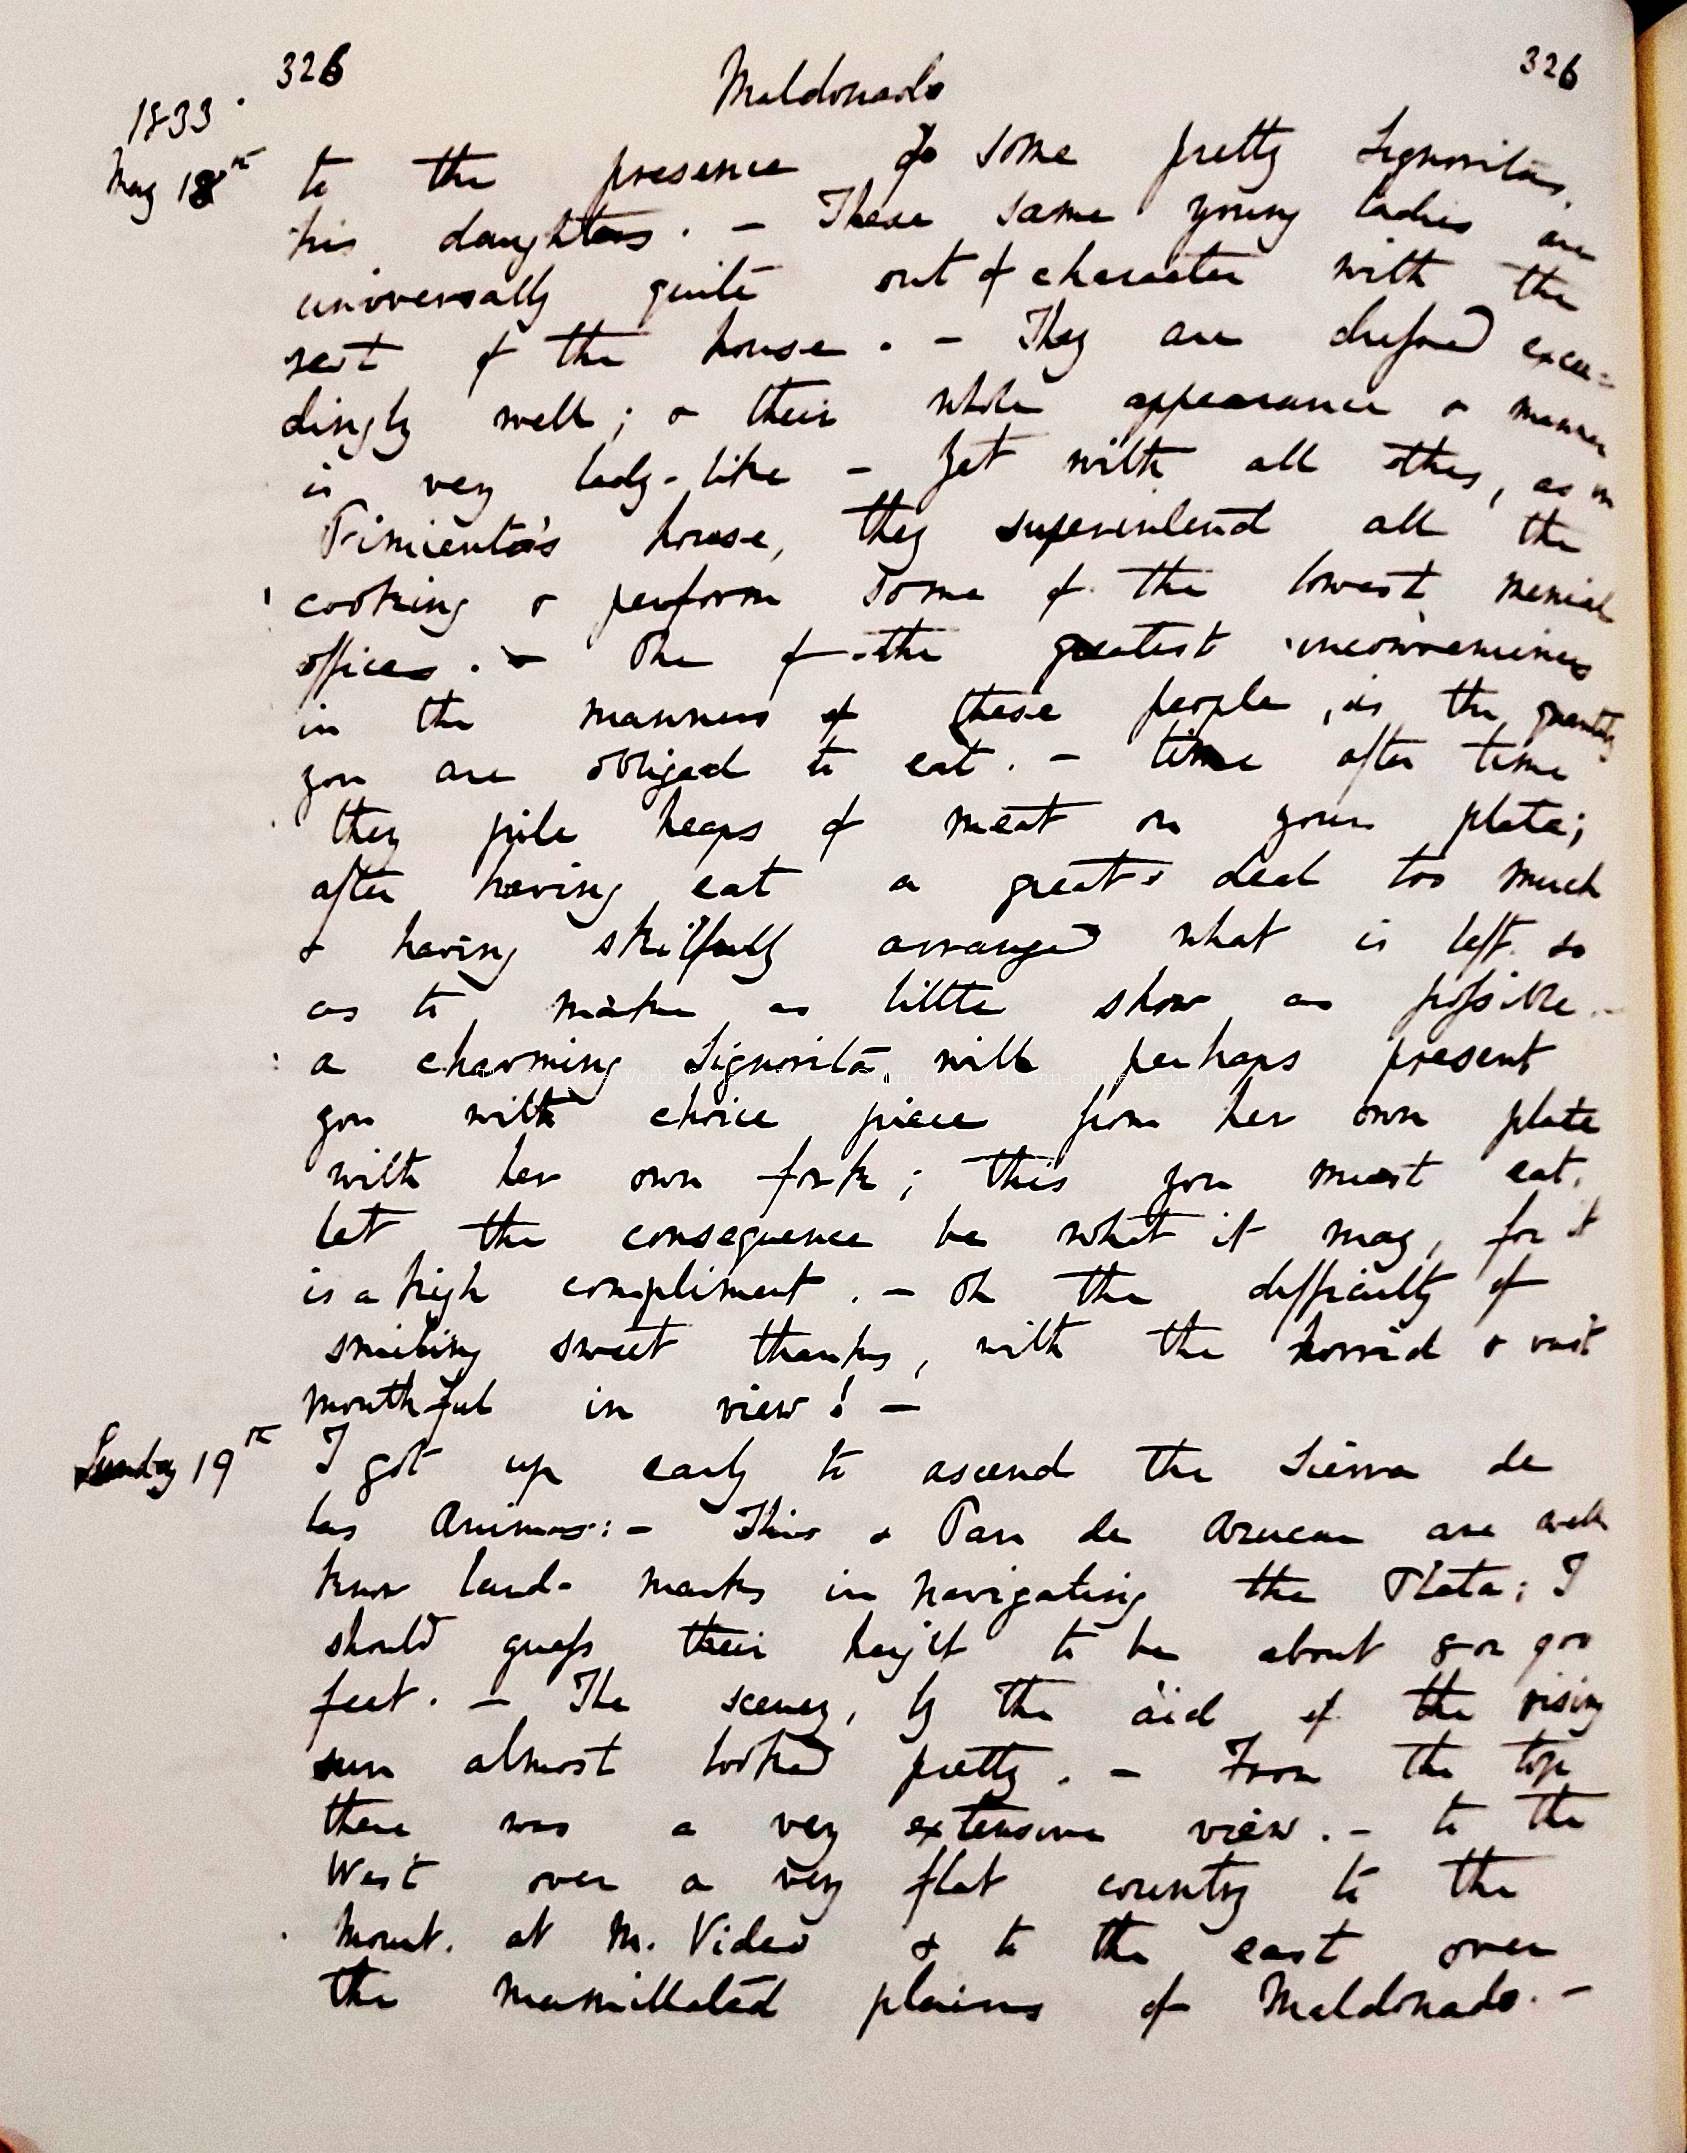 326 Maldonado 326
1833.
May 18th to the presence of some pretty Signoritas,
his daughters. — These same young ladies are
universally quite out of character with the
rest of the house. — They are dressed excee=
dingly well; & their whole appearance & manner
is very lady-like — Yet with all this, as in
Pimiento's house, they superintend all the
cooking & perform some of the lowest menial
offices. — One of the greatest inconveniences
in the manners of these people, is the quantity
you are obliged to eat. — time after time
they pile heaps of meat on your plate;
after having eat a great deal too much
& having skilfully arranged what is left so
as to make as little show as possible —
a charming Signorita will perhaps present
you with choice piece from her own plate
with her own fork; this you must eat,
let the consequence be what it may, for it
is a high compliment. — Oh the difficulty of
smiling sweet thanks, with the horrid & vast
mouthful in view! —
Sunday 19th I got up early to ascend the Sierra de
las Animas: — This & Pan de Azucar are well
know land-marks in navigating the Plata; I
should guess their heigt to be about 8 or 900
feet. — The scenery, by the aid of the rising
sun almost looked pretty. — From the top
there was a very extensive view. — to the
West over a very flat country to the
Mount. at M. Video & to the east over
the mamillated plains of Maldonado. —